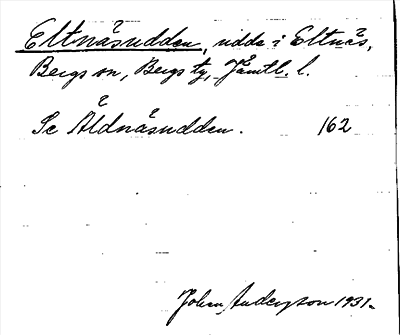 Eltnäsudden, udde i Eltnäs,
Bergs sn, Bergs tg, Jämtl. l.
Se Åldnäsudden. 162
Johan Anderson 1931.